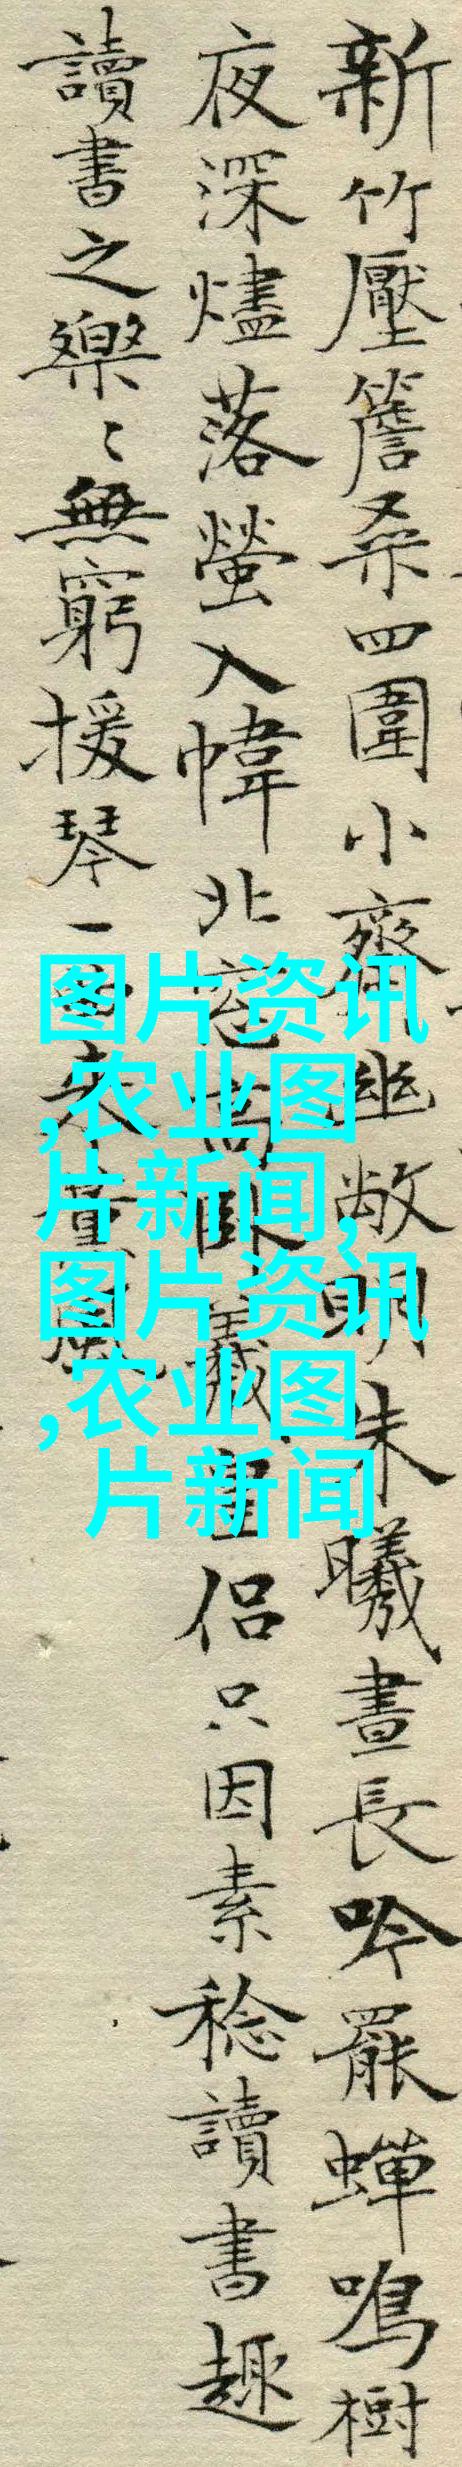 新竹壓簷桑四圍小齋幽敞明朱曦晝長吟罷蟬鳴樹
夜深燼落螢入幃北窓高臥羲皇侶只因素稔讀書趣
讀書之樂〻無窮援琴一曲來薰風
图片资讯
,农业图
片新闻,
图片资讯
,农业图
片新闻